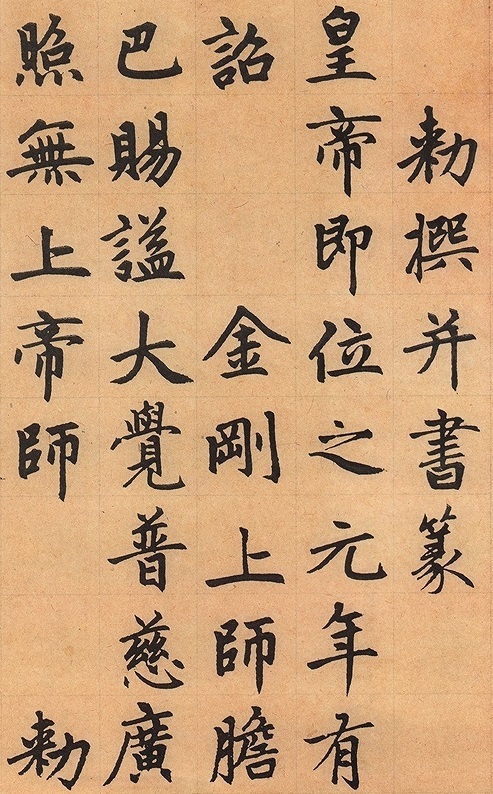 勑撰并書篆
皇帝即位之元年有
詔金剛上師膽
巴賜謚大覺普慈廣
照無上帝師勑